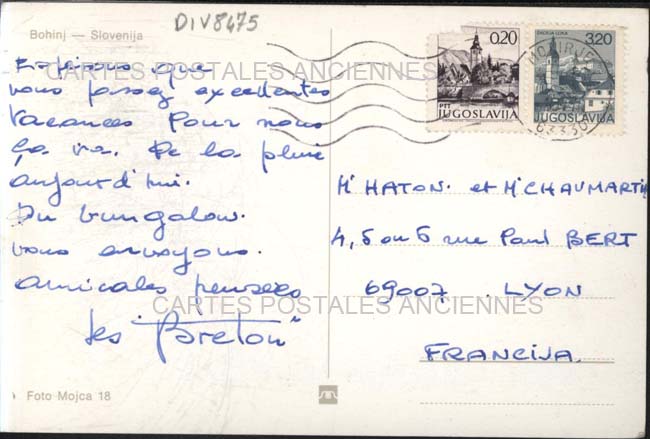 DIV8475
Bohinj — Slovenija
Espérons que
vous passez excellentes
Vacances Pour nous
ça va. De la pluie
aujourd'hui.
Du bungalow.
vous envoyons.
amicales pensées
les "Breton"
Foto Mojca 18
0.20
PTT
JUGOSLAVIJA
ŠKOFJA LOKA
3.20
JUGOSLAVIJA
MOZIRJE
63330
Mr HATON. et Mr CHAUMARTIN
4, 5 ou 6 rue Paul BERT
69007. LYON
FRANCIJA.
CARTES POSTALES ANCIENNES
CARTES POSTALES ANCIENNES